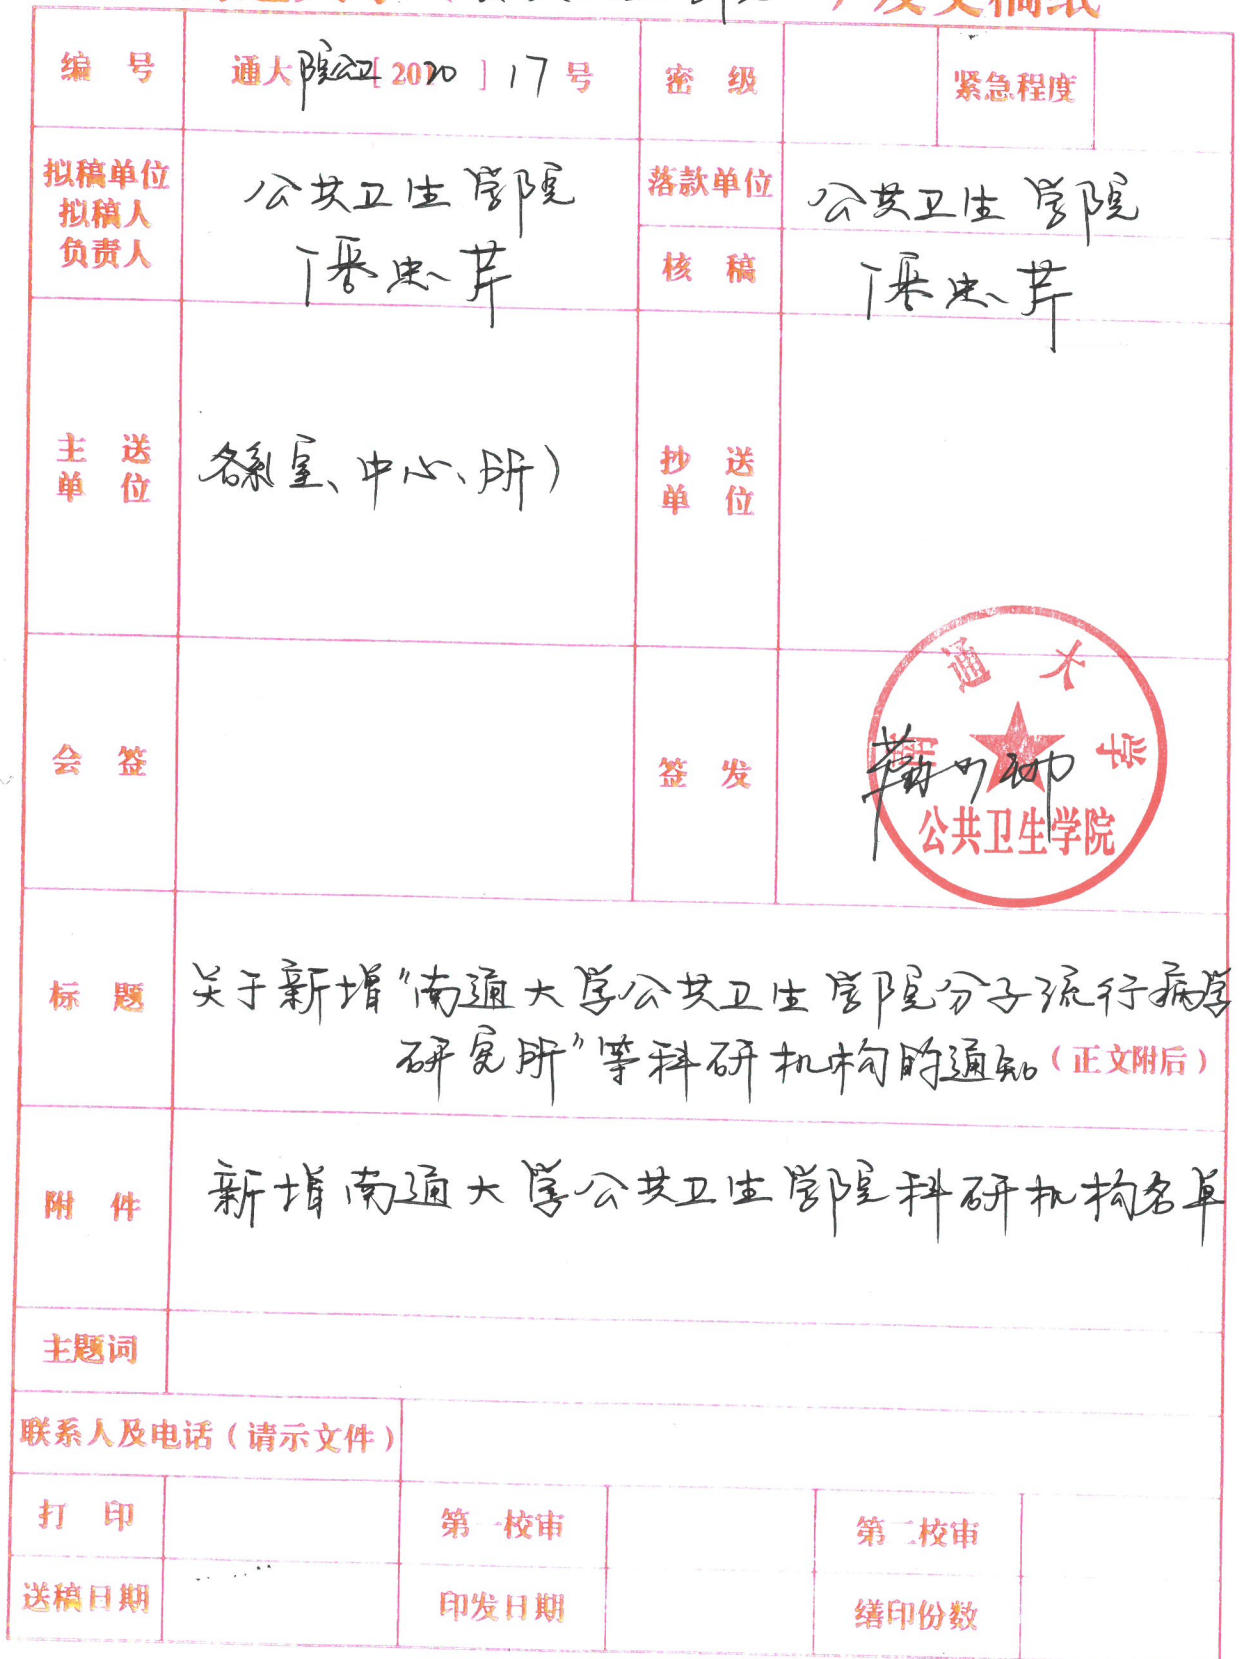 发文稿纸
编 号
通大院公卫[2020]17号
密 级
紧急程度
拟稿单位
拟稿人
负责人
公共卫生学院
落款单位
公共卫生学院
核 稿
主 送
单 位
各系室、中心、所)
抄 送
单 位
会 签
签 发
南通大学
公共卫生学院
标 题
关于新增“南通大学公共卫生学院分子流行病学
研究所”等科研机构的通知(正文附后)
附 件
新增南通大学公共卫生学院科研机构名单
主题词
联系人及电话(请示文件)
打 印
第一校审
第二校审
送稿日期
印发日期
缮印份数